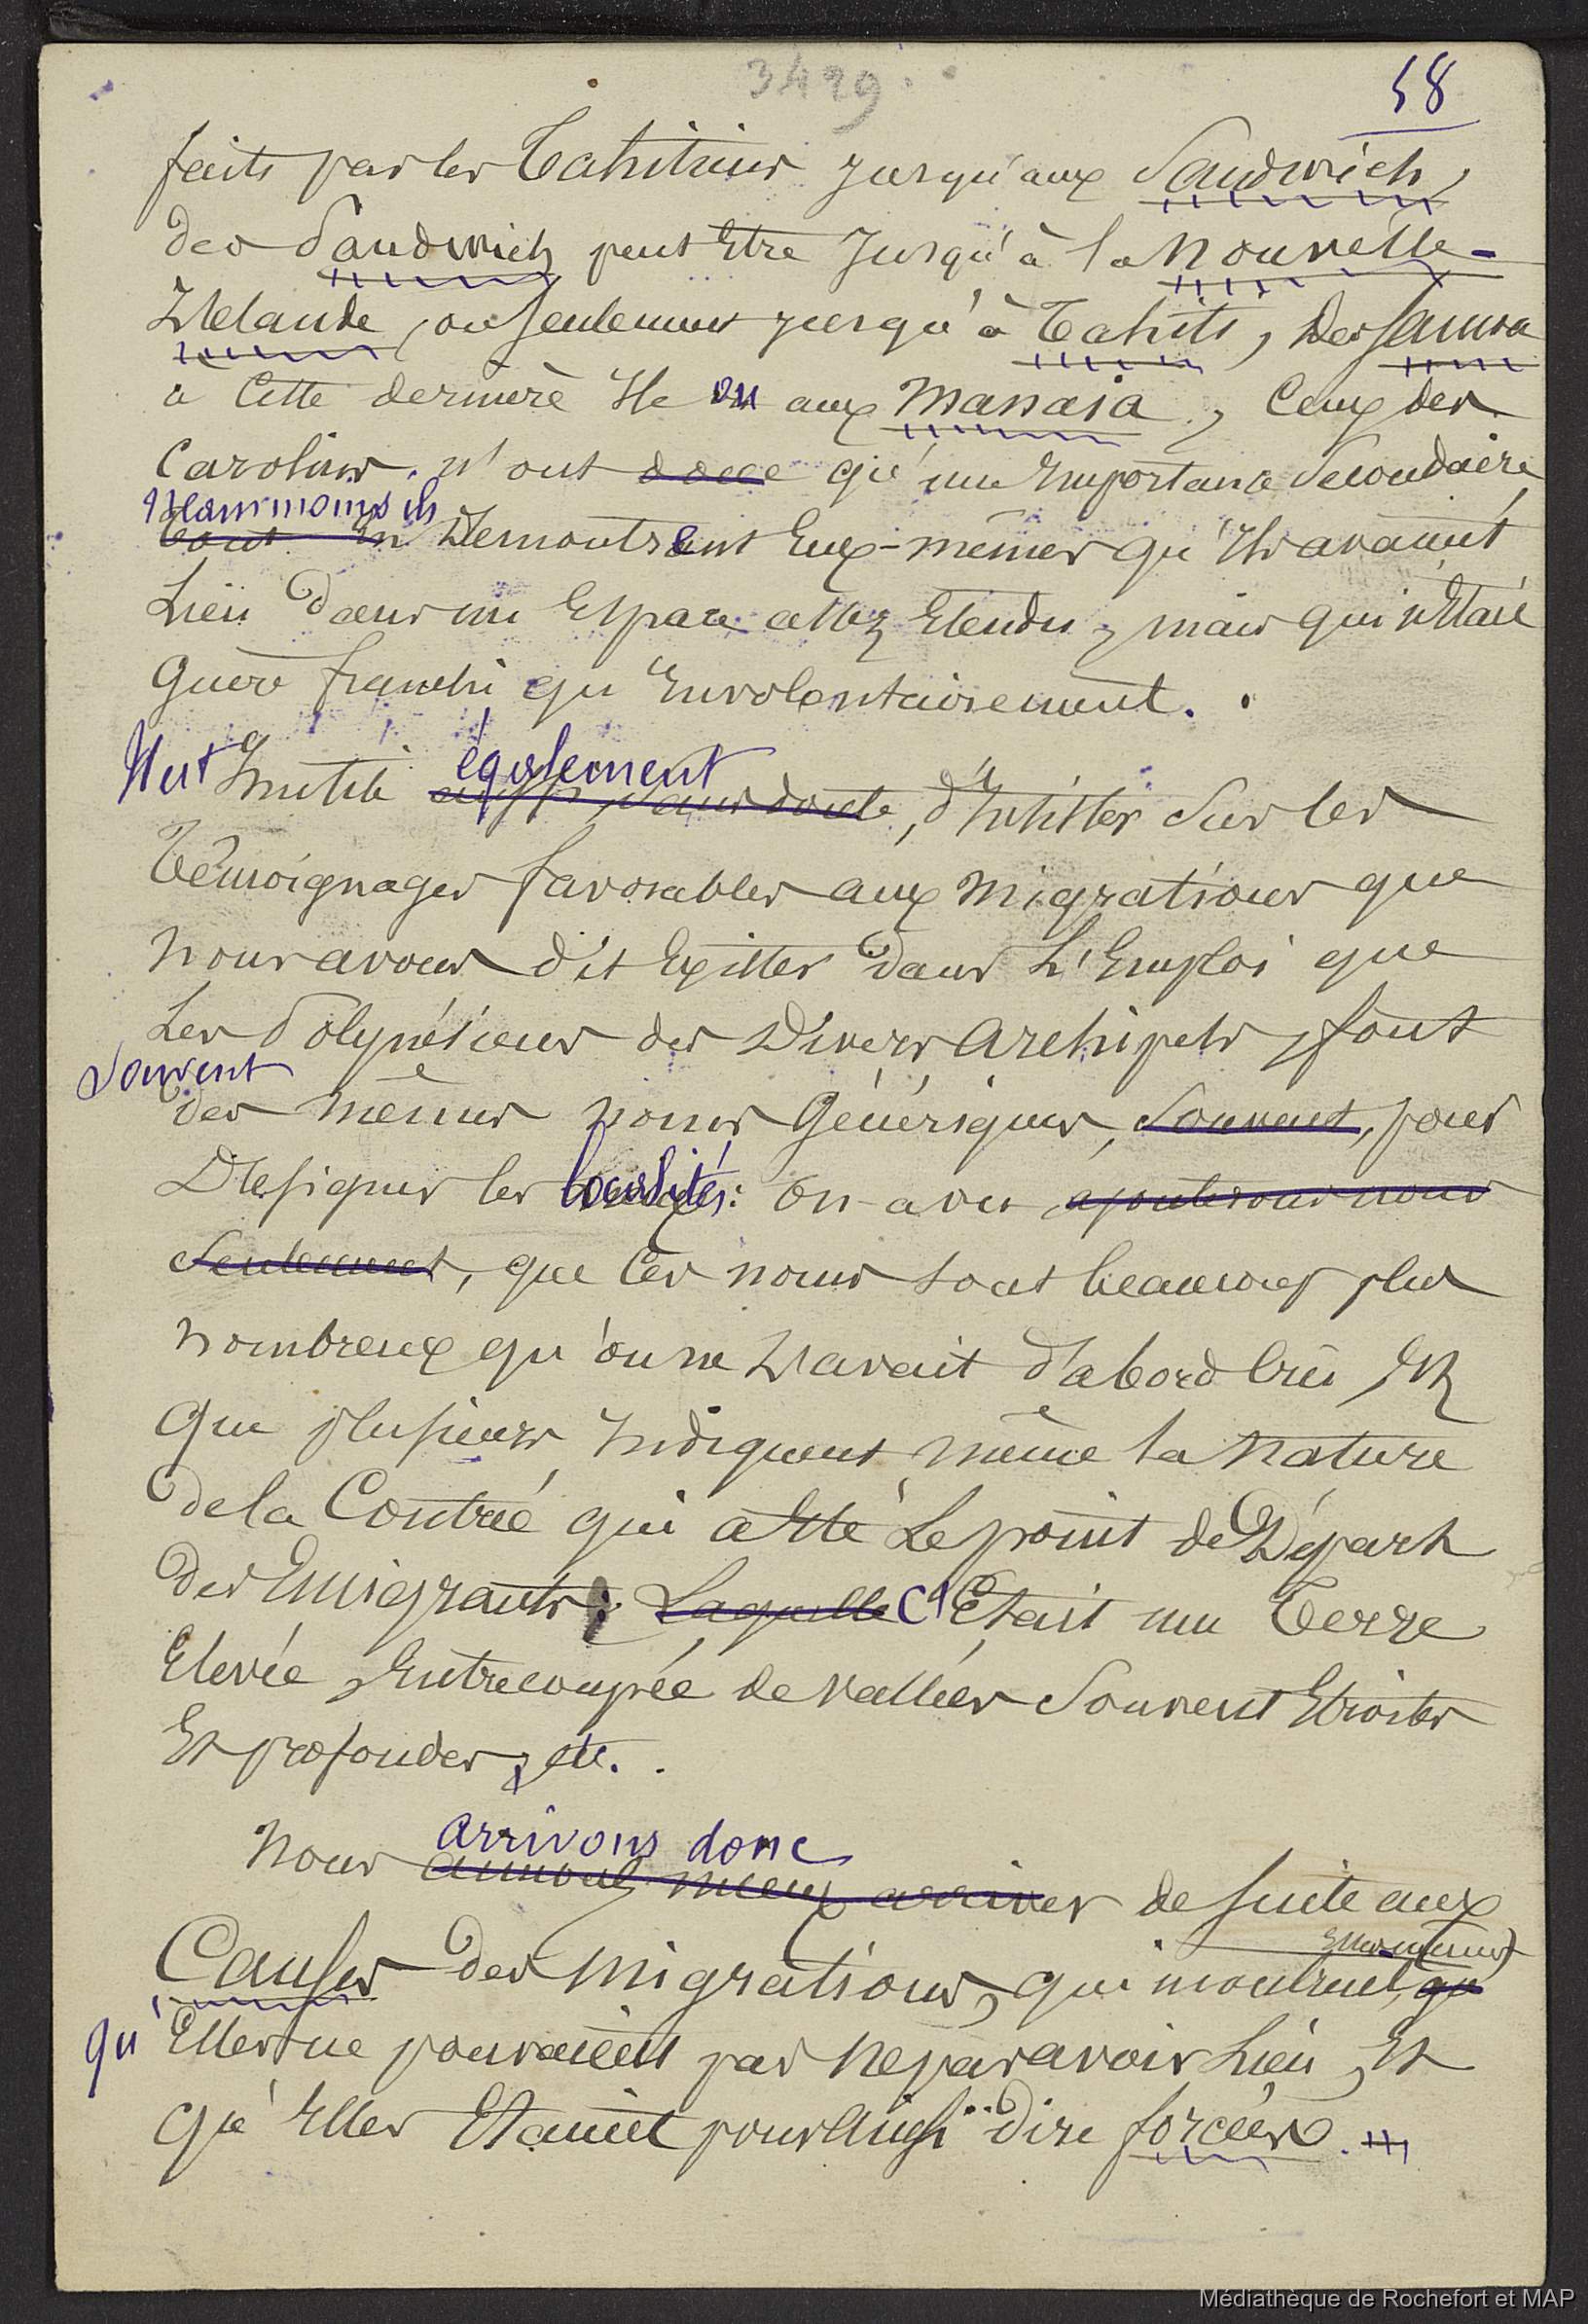 3429.
58
faits par les Tahitiens jusqu'aux Sandwich,
des Sandwich peut être jusqu'à la Nouvelle-
Zélande, ou seulement jusqu'à Tahiti, des Samoa
à cette dernière île ou aux Manaia, ceux des
Carolines. n'ont donc qu'une importance secondaire,
Néanmoins ils
tout en démontrent eux-mêmes qu'ils avaient
lieu dans un espace assez étendu, mais qui n'était
guère franchi qu'involontairement.
Il est Inutile également
aussi, sans doute, d'insister sur les
témoignages favorables aux migrations que
nous avons dit exister dans l'emploi que
les Polynésiens des divers archipels, font
souvent
des mêmes noms génériques, souvent, pour
désigner les localités: on a vu, ajouterons nous
seulement, que ces noms sont beaucoup plus
nombreux qu'on ne l'avait d'abord cru, et
que plusieurs indiquent même la nature
de la contrée qui a été le point de départ
des émigrants: Laquelle C'était une terre
élevée, entrecoupée de vallées souvent étroites
et profondes, etc.
arrivons donc
Nous aimons mieux arriver de suite aux
elles-mêmes
Causes des migrations, qui montrent, qu'
qu'elles ne pouvaient pas ne pas avoir lieu, et
qu'elles étaient pour ainsi dire forcées.
Médiathèque de Rochefort et MAP